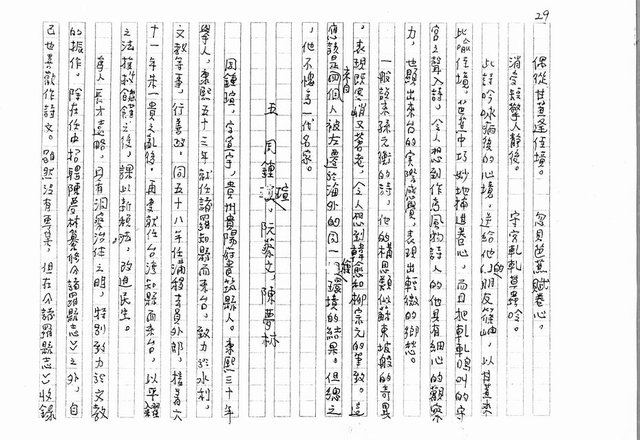 29
偶從甘蔗逢佳境。 忽見芭蕉賦卷心。
消受短檠人靜後。 守宮軋軋草蟲吟。
此詩吟咏病後的心境，送給他的朋友，以甘蔗來
比喻佳境，芭蕉中巧妙地捲進卷心，而且把軋軋鳴叫的守
宮之聲入詩，令人想到作為風物詩人的他具有細心的觀察
力，也顯出來台的實際感覺，表現出輕微的鄉愁。
一般說來孫元衡的詩，他的構思類似蘇東坡般的奇異
，表現既寒峭又蒼老，令人想到韓愈和柳宗元的筆致。這
應該是來自四個人被左遷於海外的同一環境的結果。但總之
，他不愧為一代名家。
五 周鍾瑄，阮蔡文，陳夢林
周鍾瑄，字宣子，貴州貴陽府貴筑縣人。康熙三十年
舉人，康熙五十三年就任諸羅知縣而來台，致力於水利，
文教等事，行善政。同五十八年任滿移去員外郎，接着六
十一年朱一貴之亂後，再度就任台灣知縣而來台，以平糶
之法推救飢饉之後，課以新稅法，改進民生。
為人長才遠略，具有洞察治体之明，特別致力於文教
的振作。除在任中招聘陳夢林纂修《諸羅縣志》之外，自
己也喜歡作詩文。雖然沒有專集，但在《諸羅縣志》收錄